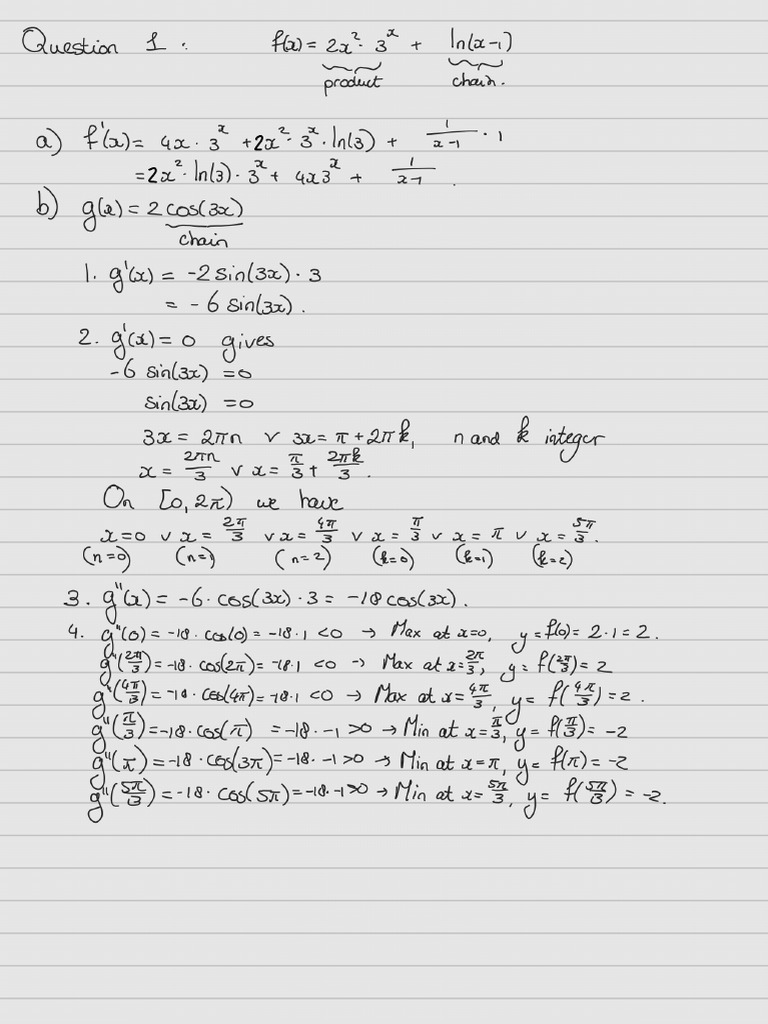 Question 1 : f(x) = 2x²· 3ˣ + ln(x-1)
product chain.
a) f'(x) = 4x · 3ˣ + 2x²· 3ˣ · ln(3) + 1/(x-1) · 1
= 2x²· ln(3) · 3ˣ + 4x3ˣ + 1/(x-1) .
b) g(x) = 2 cos(3x)
chain
1. g'(x) = -2 sin(3x) · 3
= - 6 sin(3x) .
2. g'(x) = 0 gives
-6 sin(3x) = 0
sin(3x) = 0
3x = 2πn ∨ 3x = π + 2πk, n and k integer
x = 2πn/3 ∨ x = π/3 + 2πk/3 .
On [0, 2π) we have
x=0 ∨ x = 2π/3 ∨ x = 4π/3 ∨ x = π/3 ∨ x = π ∨ x = 5π/3 .
(n=0) (n=1) (n=2) (k=0) (k=1) (k=2)
3. g"(x) = -6 · cos(3x) · 3 = -18 cos(3x) .
4. g"(0) = -18 · cos(0) = -18 · 1 < 0 → Max at x=0, y = f(0) = 2·1 = 2 .
g"(2π/3) = -18 · cos(2π) = -18·1 < 0 → Max at x = 2π/3, y = f(2π/3) = 2
g"(4π/3) = -18 · cos(4π) = -18·1 < 0 → Max at x = 4π/3, y = f(4π/3) = 2 .
g"(π/3) = -18 · cos(π) = -18 · -1 > 0 → Min at x = π/3, y = f(π/3) = -2
g"(π) = -18 · cos(3π) = -18 · -1 > 0 → Min at x = π, y = f(π) = -2
g"(5π/3) = -18 · cos(5π) = -18 · -1 > 0 → Min at x = 5π/3, y = f(5π/3) = -2 .